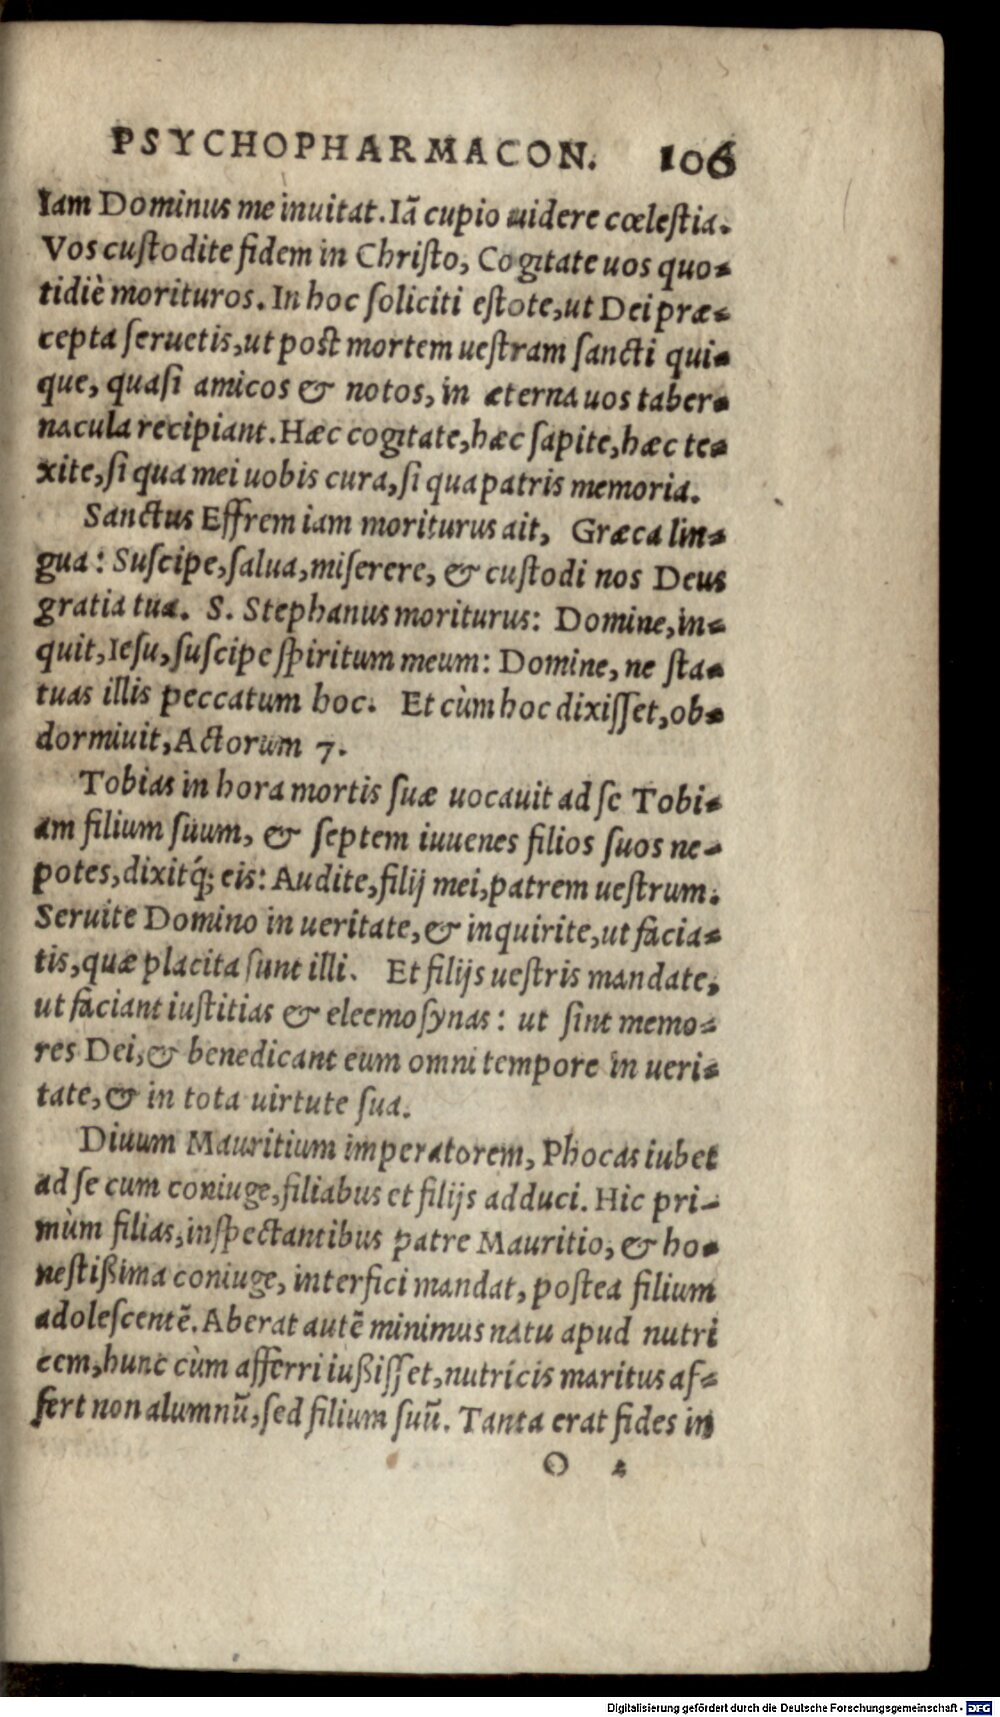 PSYCHOPHARMACON. 106
Iam Dominus me inuitat. Iã cupio uidere cœlestia.
Vos custodite fidem in Christo, Cogitate uos quo-
tidiè morituros. In hoc soliciti estote, ut Dei præ-
cepta seruetis, ut post mortem uestram sancti qui-
que, quasi amicos & notos, in æterna uos taber-
nacula recipiant. Hæc cogitate, hæc sapite, hæc te-
xite, si qua mei uobis cura, si qua patris memoria.
Sanctus Effrem iam moriturus ait, Græca lin-
gua: Suscipe, salua, miserere, & custodi nos Deus
gratia tua. S. Stephanus moriturus: Domine, in-
quit, Iesu, suscipe spiritum meum: Domine, ne sta-
tuas illis peccatum hoc. Et cùm hoc dixisset, ob-
dormiuit, Actorum 7.
Tobias in hora mortis suæ uocauit ad se Tobi-
am filium suum, & septem iuuenes filios suos ne-
potes, dixitq́; eis: Audite, filij mei, patrem uestrum.
Seruite Domino in ueritate, & inquirite, ut facia-
tis, quæ placita sunt illi. Et filijs uestris mandate,
ut faciant iustitias & eleemosynas: ut sint memo-
res Dei, & benedicant eum omni tempore in ueri-
tate, & in tota uirtute sua.
Diuum Mauritium imperatorem, Phocas iubet
ad se cum coniuge, filiabus et filijs adduci. Hic pri-
mùm filias, inspectantibus patre Mauritio, & ho-
nestißima coniuge, interfici mandat, postea filium
adolescentẽ. Aberat autẽ minimus natu apud nutri
cem, hunc cùm afferri iußisset, nutricis maritus af-
fert non alumnũ, sed filium suũ. Tanta erat fides in
O 2
Digitalisierung gefördert durch die Deutsche Forschungsgemeinschaft - DFG